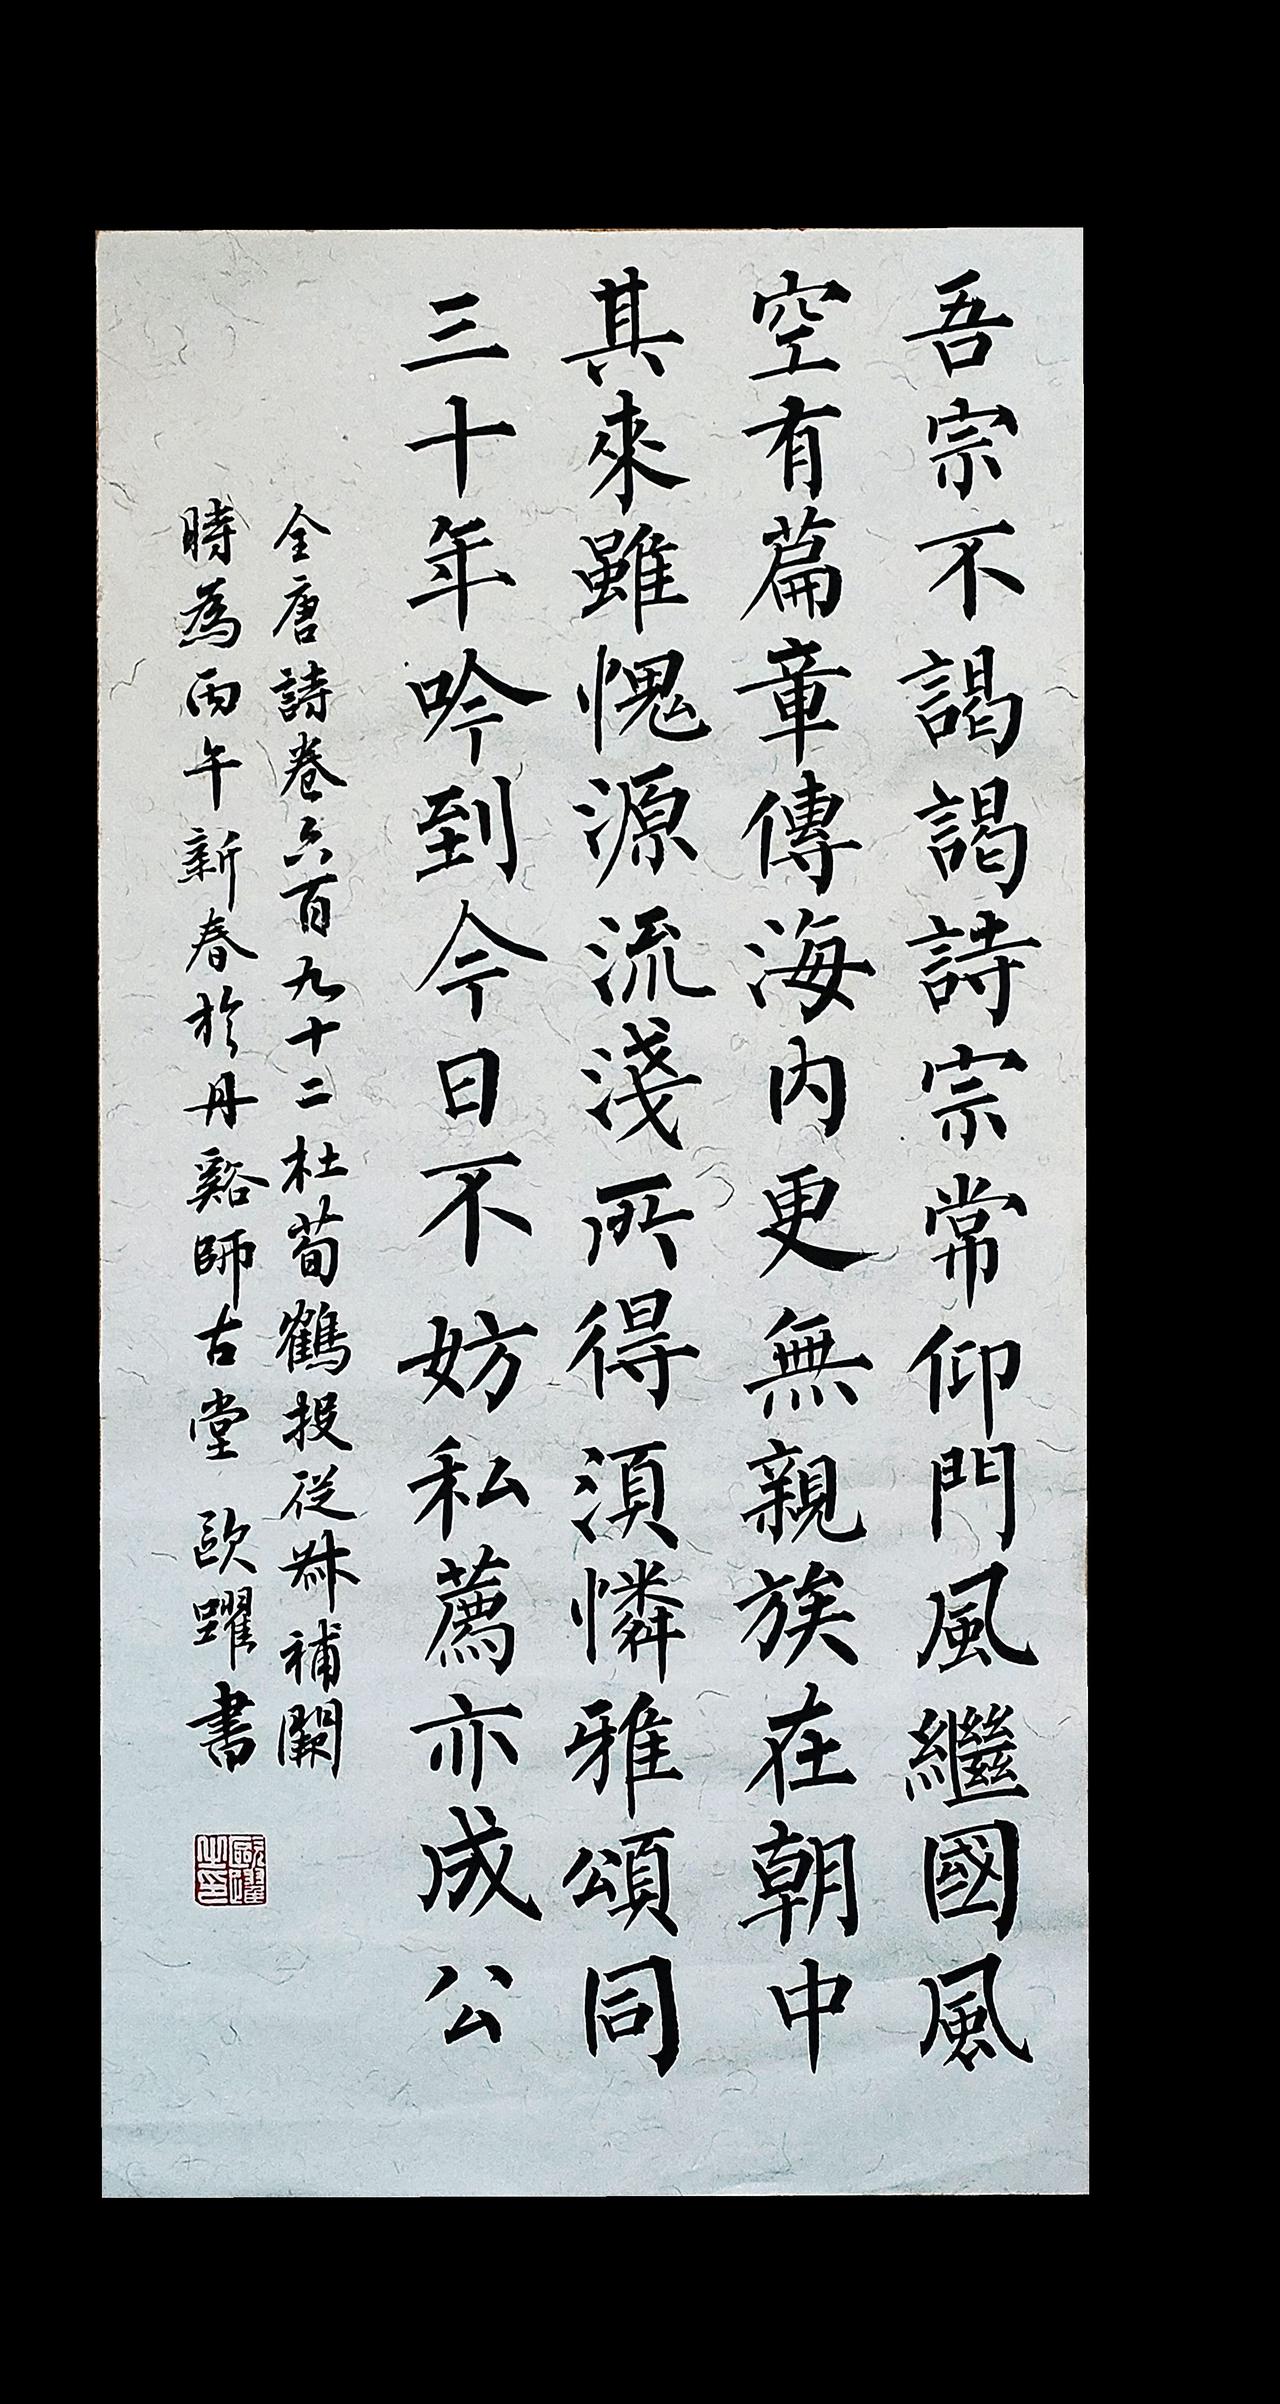 吾宗不謁謁詩宗常仰門風繼國風
空有篇章傳海內更無親族在朝中
其來雖愧源流淺所得須憐雅頌同
三十年吟到今日不妨私薦亦成公
全唐詩卷六百九十二杜荀鶴投從叔補闕
時為丙午新春於丹谿師古堂 歐躍書
歐躍之印